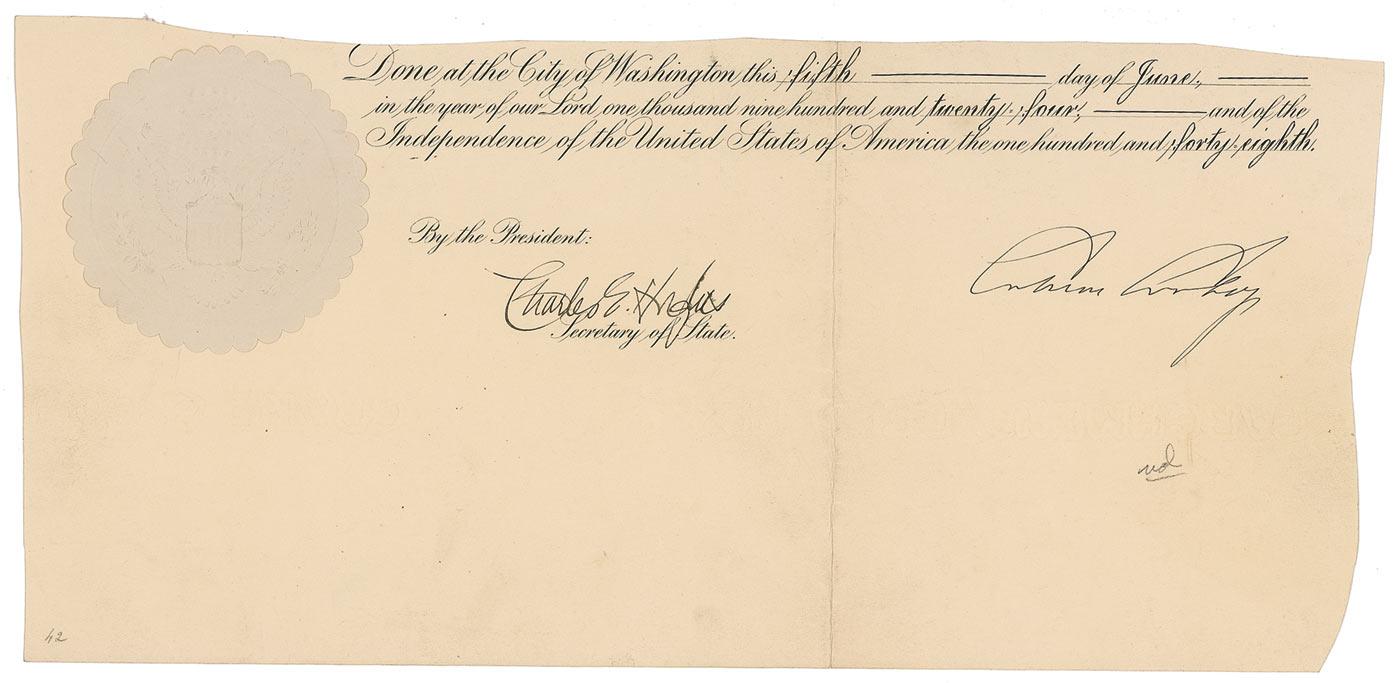 Done at the City of Washington this fifth day of June,
in the year of our Lord one thousand nine hundred and twenty-four, and of the
Independence of the United States of America the one hundred and forty-eighth.
By the President:
Calvin Coolidge
Charles E. Hughes
Secretary of State.
42